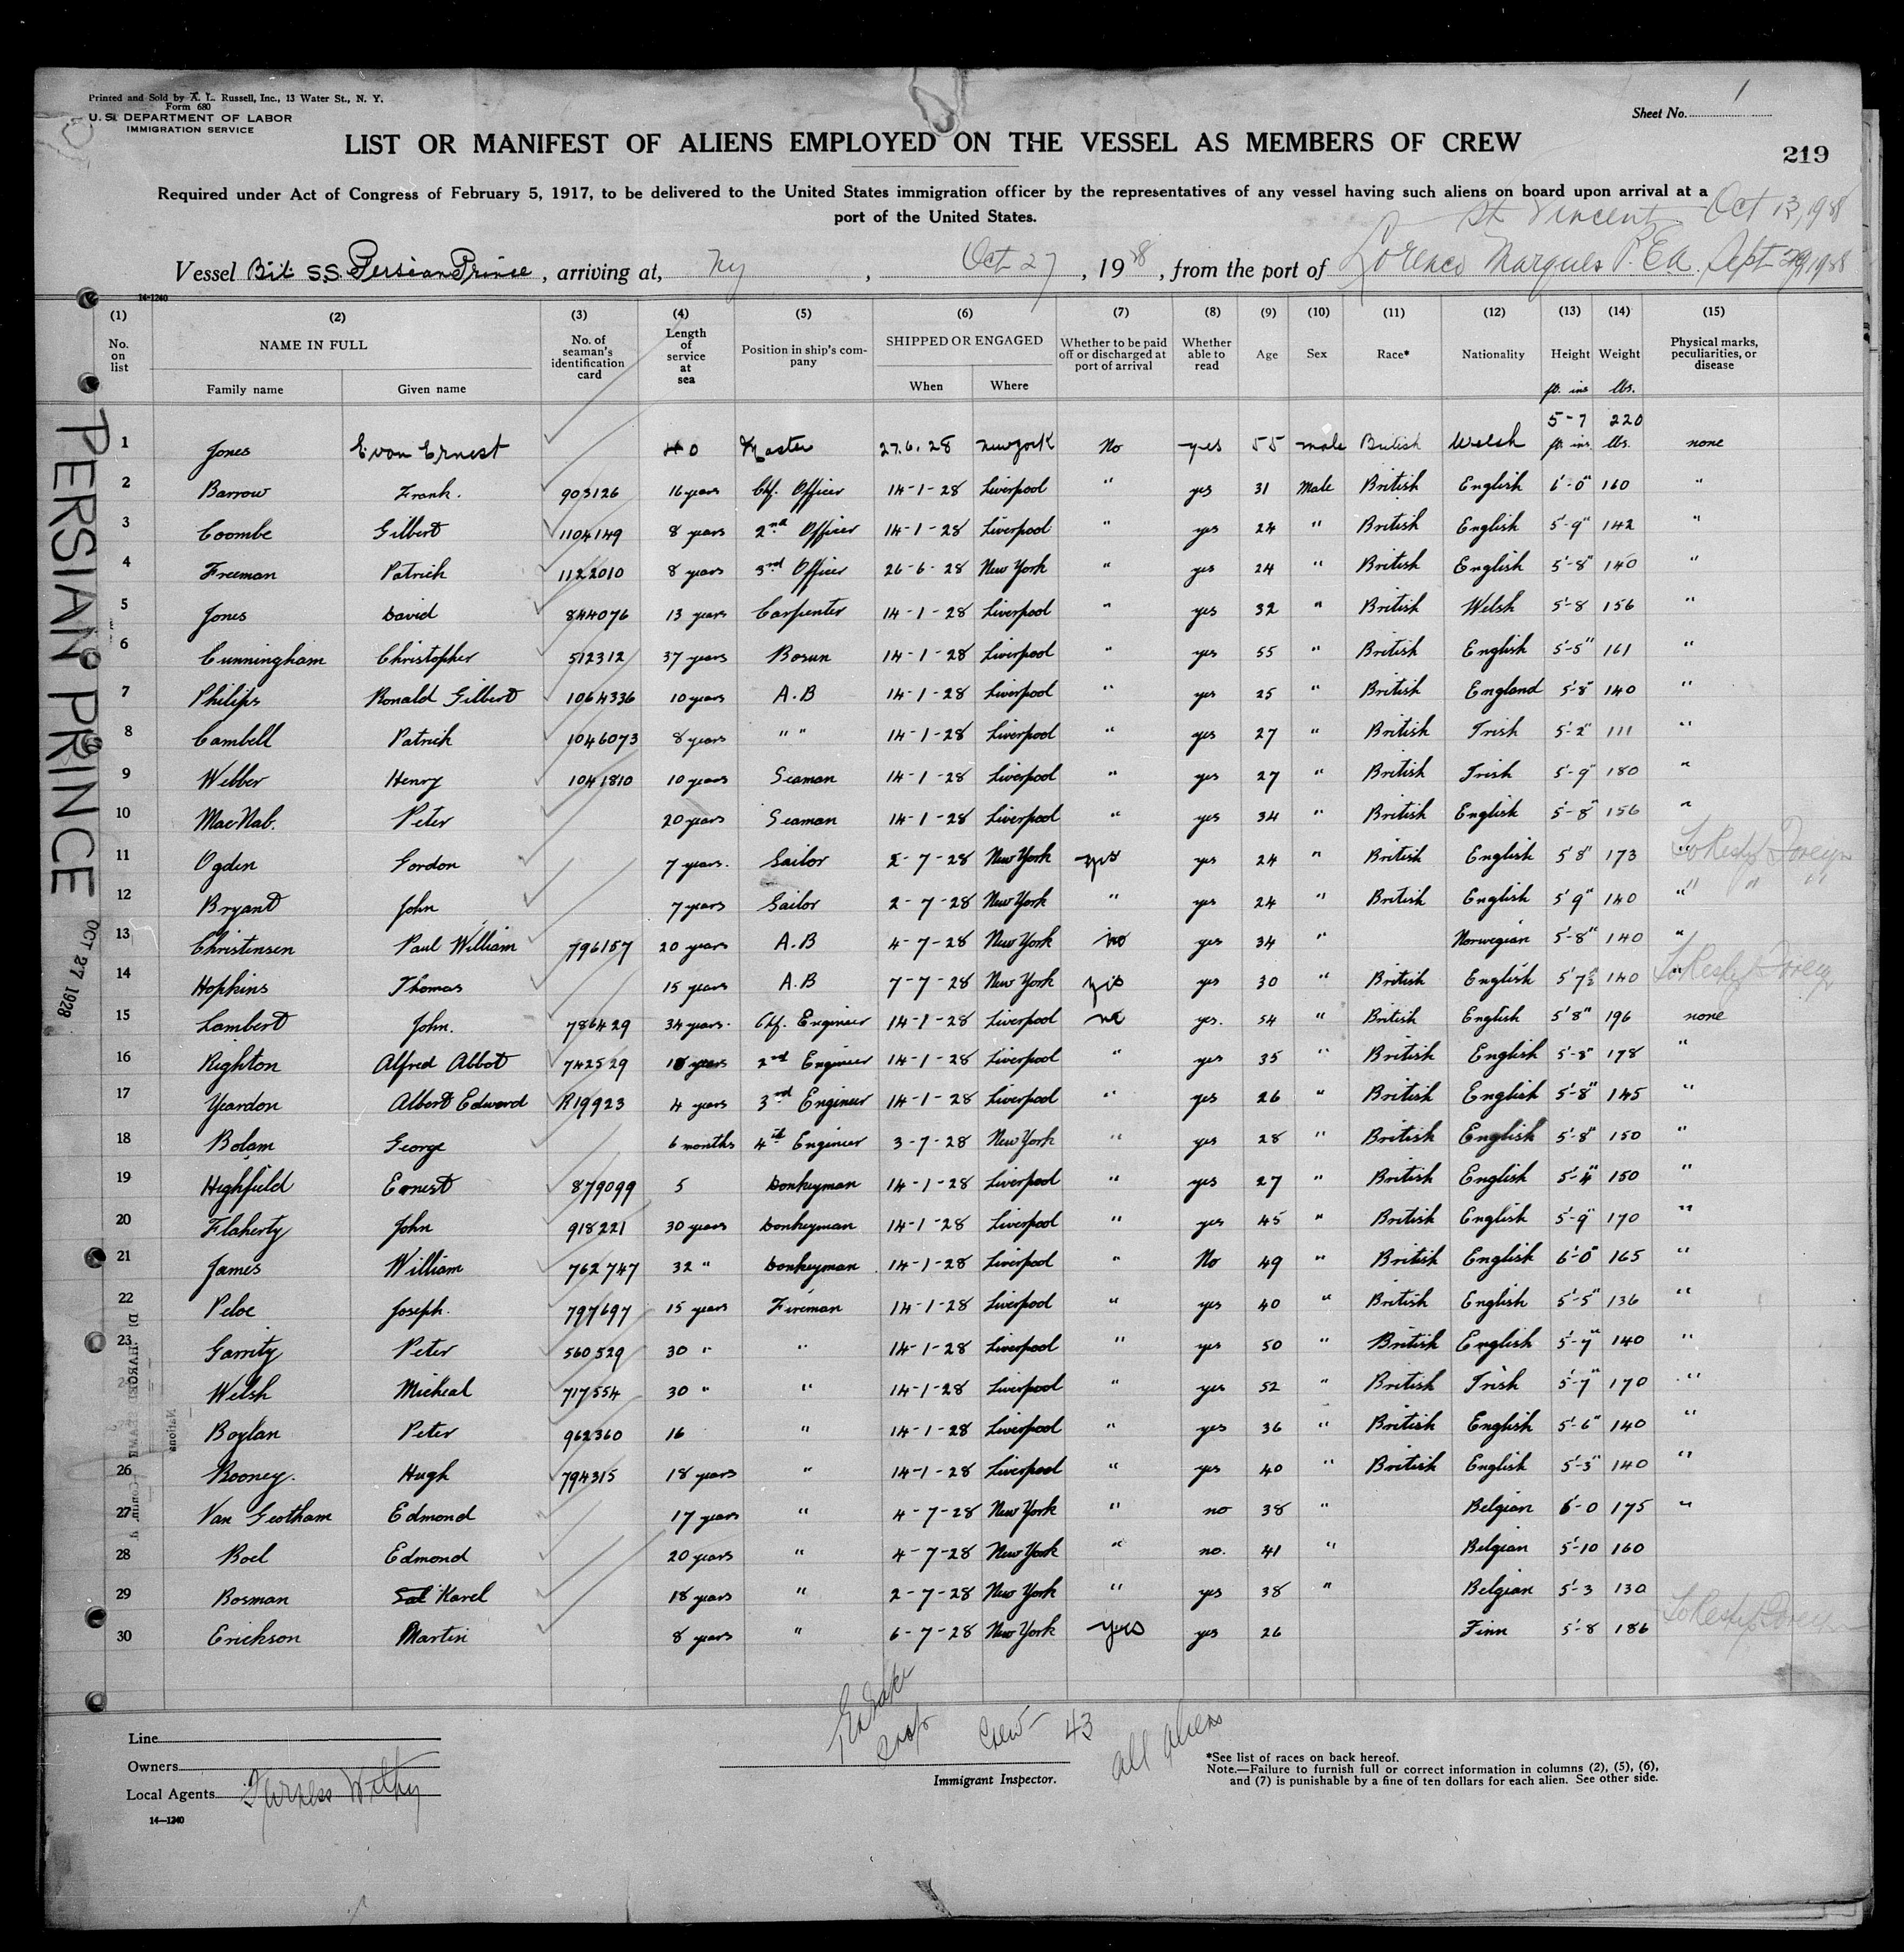 Printed and Sold by A. L. Russell, Inc., 13 Water St., N. Y.
Form 680
U. S. DEPARTMENT OF LABOR
IMMIGRATION SERVICE
Sheet No. 1
LIST OR MANIFEST OF ALIENS EMPLOYED ON THE VESSEL AS MEMBERS OF CREW
219
Required under Act of Congress of February 5, 1917, to be delivered to the United States immigration officer by the representatives of any vessel having such aliens on board upon arrival at a
port of the United States.
St Vincent Oct 13, 1928
Vessel Bit SS. Persian Prince, arriving at, Ny, Oct 27, 1928, from the port of Lorenco Marques P. Ea. Sept 29 1928
14-1240
(1) (2) (3) (4) (5) (6) (7) (8) (9) (10) (11) (12) (13) (14) (15)
No. on list NAME IN FULL No. of seaman's identification card Length of service at sea Position in ship's company SHIPPED OR ENGAGED Whether to be paid off or discharged at port of arrival Whether able to read Age Sex Race* Nationality Height Weight Physical marks, peculiarities, or disease
Family name Given name When Where ft. ins lbs.
5-7 220
1 Jones Evan Ernest 40 Master 27.6.28 new york No yes 55 male British Welsh ft. ins. lbs. none
2 Barrow Frank. 903126 16 years Chf. Officer 14-1-28 Liverpool " yes 31 Male British English 6'-0" 160 "
3 Coombe Gilbert 1104149 8 years 2nd Officer 14-1-28 Liverpool " yes 24 " British English 5'-9" 142 "
4 Freeman Patrick 1122010 8 years 3rd Officer 26-6-28 New York " yes 24 " British English 5'-8" 140 "
5 Jones David 844076 13 years Carpenter 14-1-28 Liverpool " yes 32 " British Welsh 5'-8 156 "
6 Cunningham Christopher 512312 37 years Bosun 14-1-28 Liverpool " yes 55 " British English 5'-5" 161 "
7 Philips Ronald Gilbert 1064336 10 years A.B 14-1-28 Liverpool " yes 25 " British England 5'-8" 140 "
8 Cambell Patrick 1046073 8 years " " 14-1-28 Liverpool " yes 27 " British Irish 5'-2" 111 "
9 Webber Henry 1041810 10 years Seaman 14-1-28 Liverpool " yes 27 " British Irish 5'-9" 180 "
10 MacNab. Peter 20 years Seaman 14-1-28 Liverpool " yes 34 " British English 5'-8" 156 "
11 Ogden Gordon 7 years. Sailor 2-7-28 New York yes yes 24 " British English 5'8" 173 " To Reship Foreign
12 Bryant John 7 years Sailor 2-7-28 New York " yes 24 " British English 5'9" 140 " " " "
13 Christensen Paul William 796157 20 years A.B 4-7-28 New York no yes 34 " Norwegian 5'-8" 140 "
14 Hopkins Thomas 15 years A.B 7-7-28 New York yes yes 30 " British English 5'7½ 140 " To Reship Foreign
15 Lambert John. 786429 34 years. Chf. Engineer 14-1-28 Liverpool no yes. 54 " British English 5'8" 196 none
16 Righton Alfred Abbot 742529 years 2nd Engineer 14-1-28 Liverpool " yes 35 " British English 5'-8" 178 "
17 Yeardon Albert Edward R19923 4 years 3rd Engineer 14-1-28 Liverpool " yes 26 " British English 5'-8" 145 "
18 Bolam George 6 months 4th Engineer 3-7-28 New York " yes 28 " British English 5'-8" 150 "
19 Highfield Ernest 879099 5 Donkeyman 14-1-28 Liverpool " yes 27 " British English 5'-4" 150 "
20 Flaherty John 918221 30 years Donkeyman 14-1-28 Liverpool " yes 45 " British English 5'-9" 170 "
21 James William 762747 32 " Donkeyman 14-1-28 Liverpool " No 49 " British English 6'-0" 165 "
22 Peloe Joseph. 797697 15 years Fireman 14-1-28 Liverpool " yes 40 " British English 5'-5" 136 "
23 Garrity Peter 560529 30 " " 14-1-28 Liverpool " yes 50 " British English 5'-7" 140 "
Welsh Micheal 717554 30 " " 14-1-28 Liverpool " yes 52 " British Irish 5'-7" 170 "
Boylan Peter 962360 16 " 14-1-28 Liverpool " yes 36 " British English 5'-6" 140 "
26 Rooney. Hugh 794315 18 years " 14-1-28 Liverpool " yes 40 " British English 5'-3" 140 "
27 Van Geotham Edmond 17 years " 4-7-28 New York " no 38 " Belgian 6'-0 175 "
28 Boel Edmond 20 years " 4-7-28 New York " no. 41 " Belgian 5'-10 160
29 Bosman Karel 18 years " 2-7-28 New York " yes 38 " Belgian 5'-3 130
30 Erickson Martin 8 years " 6-7-28 New York yes yes 26 Finn 5'-8 186 To Reship Foreign
PERSIAN PRINCE
OCT 27 1928
Nations
Line
Owners
Local Agents Furness Withy
14-1240
Crew - 43
all aliens
Immigrant Inspector.
*See list of races on back hereof.
Note.—Failure to furnish full or correct information in columns (2), (5), (6),
and (7) is punishable by a fine of ten dollars for each alien. See other side.